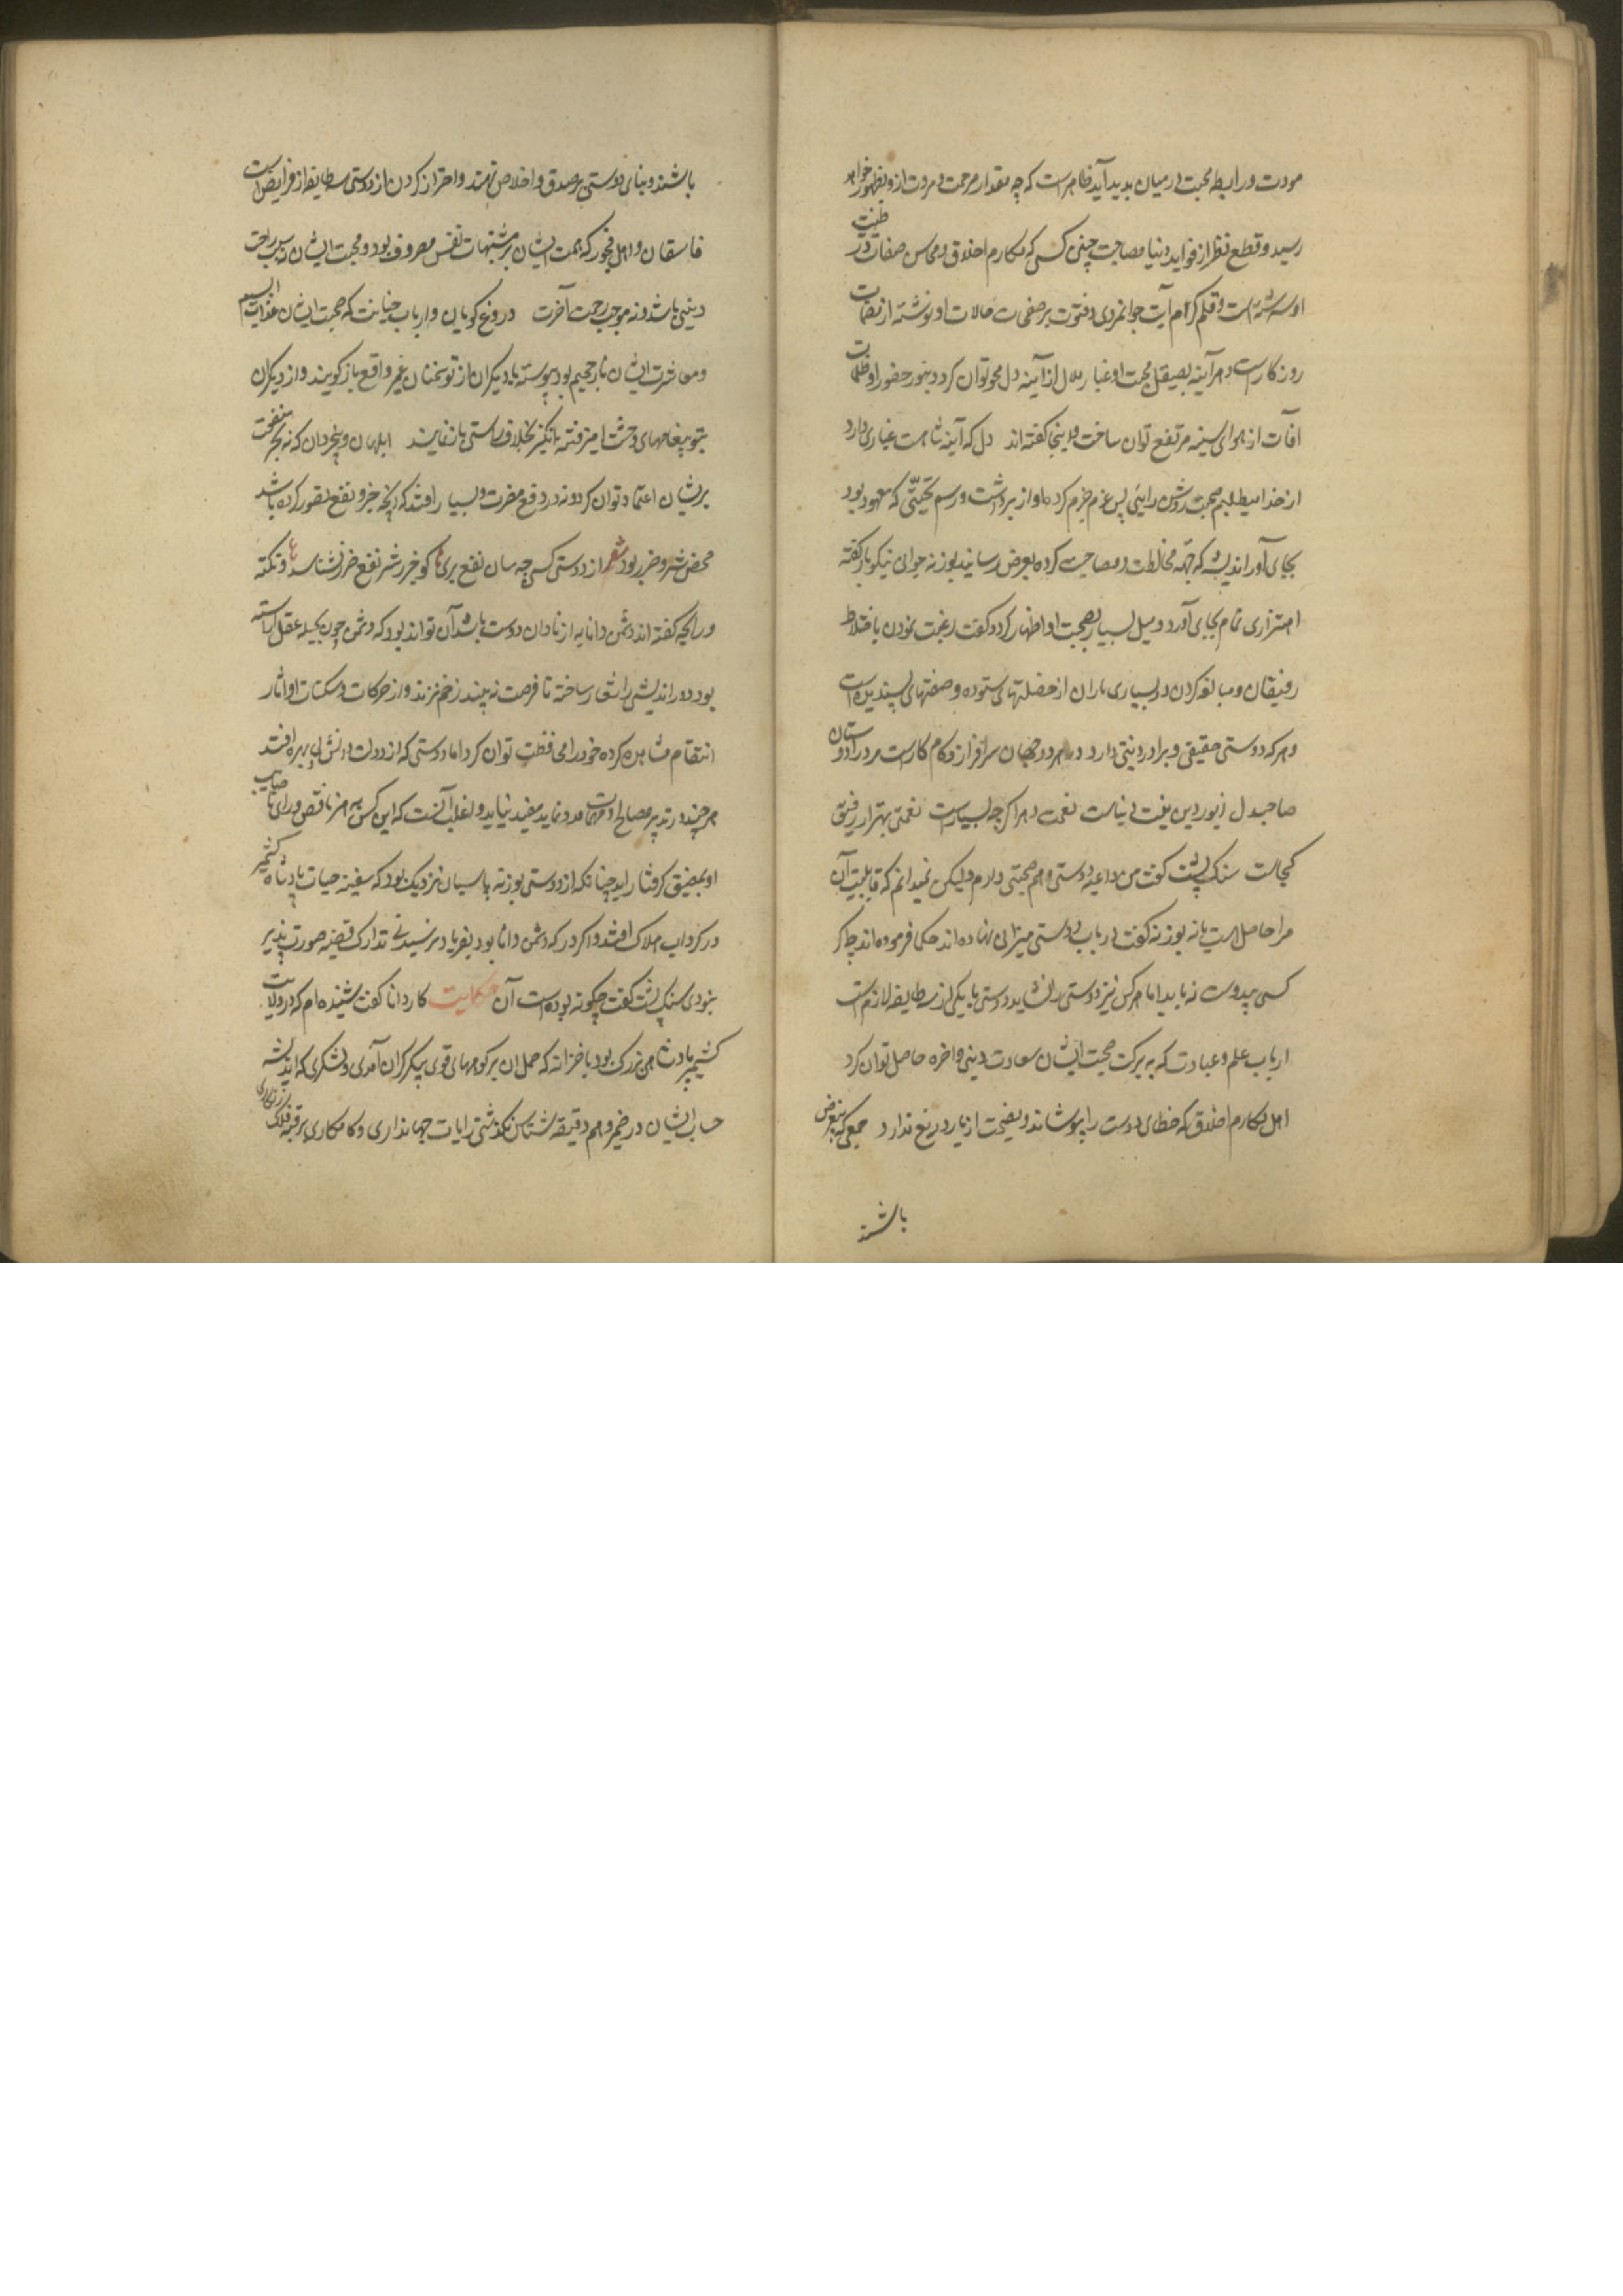 مودت و رابطه محبت در میان پدید آید ظاهر است که چه مقدار مرحمت و مروت ازو بظهور خواهد
رسید و قطع نظر از فواید دنیا مصاحبت چنین کسی که مکارم اخلاق و محاسن صفات در طینت
او سرشته است و قلم کرم آیت جوانمردی و فتوت بر صفحات حالات او نوشته از
روزکار است و هر آینه بصیقل محبت او غبار ملال از آینه دل محو توان کرد و بنور حضور او ظلمات
آفات از هوای سینه مرتفع توان ساخت و اینجا کفته اند دل که آینه شاهیست غباری دارد
از خدا میطلبم صحبت روشن رایئی پس عزم جزم کرده آواز برداشت و رسم تحیتی که معهود بود
بجای آورد اندیشه که جهة مخالطت و مصاحبت کرده بعرض رسانید بوزنه جوابی نیکو باز کفته
اهتزازی تمام بجای آورد و میل بسیار بصحبت او اظهار کرد و کفت رغبت نمودن باختلاط
رفیقان و مبالغه کردن در بسیاری یاران از خصلتهای ستوده و صفتهای پسندیده است
و هر که دوستی حقیقی و برادر دینی دارد در هر دو جهان سرافراز و کام کارست مرد را دوستان
صاحبدل زیور دین دنیاست نعمت دهر اکرچه بسیارست نعمتی بهتر از رفیق
کجاست سنک پشت کفت من داعیه دوستی و هم صحبتی دارم ولیکن نمیدانم که قابلیت آن
مرا حاصل است یا نه بوزنه کفت در باب دوستی میزانی نهاده اند حکما فرموده اند چه اکر
کسی بیدوست نباید اما هر کس نیز دوستی را نشاید دوستی با یکی از سه طایفه لازم است
ارباب علم و عبادت که به برکت صحبت ایشان سعادت دینی و اخره حاصل توان کرد
اهل مکارم اخلاق که خطای دوست را بپوشاند و نصیحت از یار دریغ ندارد جمعی که بیغرض
باشند
باشند و بنای دوستی بر صدق و اخلاص نهند و احتراز کردن از دوستی سه طایفه از فرایض است
فاسقان و اهل فجور که همت ایشان بر مشتهیات نفس مصروف بود و محبت ایشان نه سبب راحت
دینی باشد و نه موجب رحمت آخرت دروغ کویان و ارباب خیانت که صحبت ایشان عذاب الیم
و معاشرت ایشان نار جحیم بود پیوسته با دیکران از تو سخنان غیر واقع باز کویند و از دیکران
بتو پیغامهای وحشت امیز فتنه انکیز بخلاف راستی باز نمایند ابلهان و بیخردان که نه بجر منفعت
بریشان اعتماد توان کرد و نه در دفع مضرت و بسیار افتد که آنچه خیر و نفع تصور کرده باشد
محض شر و ضرر بود شعر از دوستی کسی چه سان نفع بری کو خیر ز شر نفع ز ضرر نشناسد و نکته
در آنچه کفته اند دشمن دانا به از نادان دوست باشد آن تواند بود که دشمن چون بحیله عقل آراسته
بود دور اندیشی را شعار ساخته تا فرصت نه بیند زخم نزند و از حرکات و سکنات او اثار
انتقام مشاهده کرده خود را محافظت توان کرد اما دوستی که از دولت دانش بی بهره افتد
هر چند در تدبیر مصالح و مهمات مدد نماید مفید نیاید و اغلب آنست که این کس به هنر ناقص و رای ناصایب
او بمضیق کرفتار اید چنانکه از دوستی بوزنه پاسبان نزدیک بود که سفینه حیات پادشاه کشمیر
در کرداب هلاک افتد و اکر دزد که دشمن دانا بود بفریاد نرسیدی تدارک قضیه صورت پذیر
نبودی سنک پشت کفت چکونه بوده است آن حکایت کاردانا کفت شنیده ام که در ولایت
کشمیر پادشاهی بزرک بود با خزانه که حمل ان بر کوههای قوی پیکر کران آمدی و لشکری که اندیشه
حساب ایشان در ضمیر وهم دقیقه شناس نکذشتی رایات جهانداری و کامکاری بر قبه فلک زنکاری